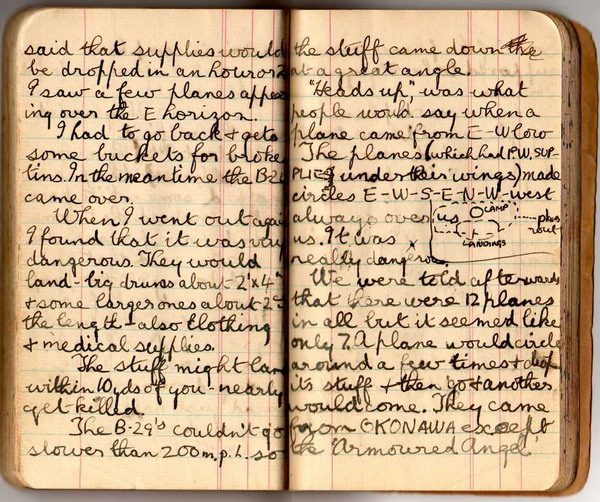 said that supplies would
be dropped in an hour or 2
I saw a few planes appear
ing over the E horizon.
I had to go back & get
some buckets for broken
tins. In the meantime the B-29
came over.
When I went out again
I found that it was very
dangerous. They would
land-big drums about 2'x4'
& some larger ones about
the length - also clothing
& medical supplies.
The stuff might land
within 10 yds of you - nearly
get killed.
The B-29's couldn't go
slower than 200 m.p.h. so
the stuff came down
at a great angle.
"Heads up", was what
people would say when a
plane came from E-W low
The planes (which had P.W. SUP-
PLIES under their wings) made
circles E-W-S-E-N-W-west
always over us
CAMP
planes
rout
LANDINGS
us. It was
really dangerous.
We were told afterwards
that there were 12 planes
in all but it seemed like
only 7. A plane would circle
around a few times & drop
its stuff & then go & another
would come. They came
from OKONAWA except
the 'Armoured Angel'